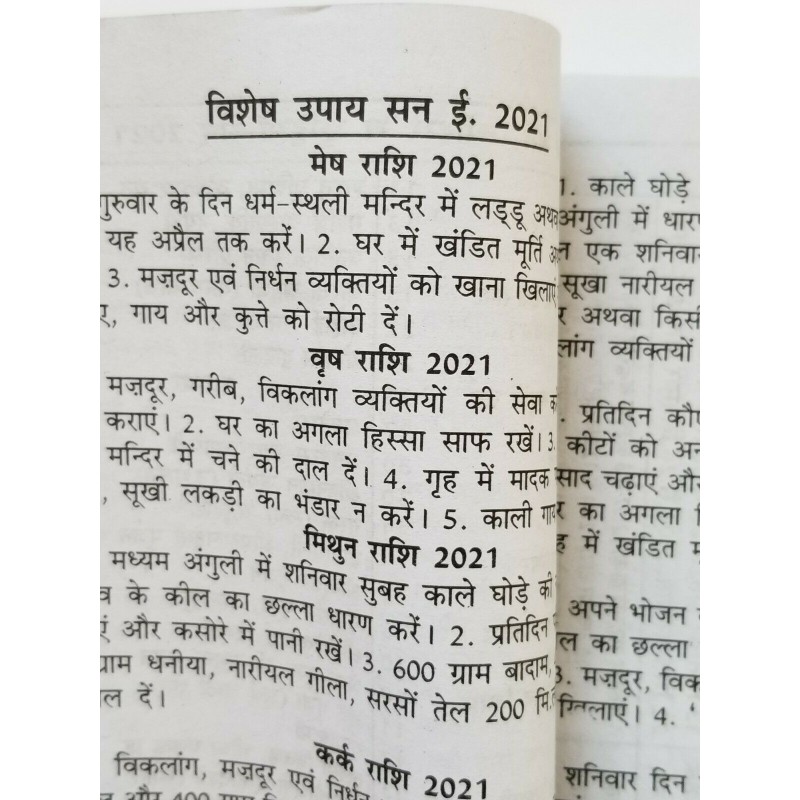 विशेष उपाय सन ई. 2021
मेष राशि 2021
गुरुवार के दिन धर्म-स्थली मन्दिर में लड्डू
यह अप्रैल तक करें। 2. घर में खंडित मूर्ति
3. मज़दूर एवं निर्धन व्यक्तियों को खाना खिलाएं
गाय और कुत्ते को रोटी दें।
वृष राशि 2021
मज़दूर, गरीब, विकलांग व्यक्तियों की सेवा
कराएं। 2. घर का अगला हिस्सा साफ रखें। 3.
मन्दिर में चने की दाल दें। 4. गृह में मादक
, सूखी लकड़ी का भंडार न करें। 5. काली
मिथुन राशि 2021
मध्यम अंगुली में शनिवार सुबह काले घोड़े की
के कील का छल्ला धारण करें। 2. प्रतिदिन
और कसोरे में पानी रखें। 3. 600 ग्राम बादाम,
धनीया, नारीयल गीला, सरसों तेल 200 मि.
दें।
कर्क राशि 2021
विकलांग, मज़दूर एवं निर्धन
और 400 ग्राम
1. काले घोड़े
अंगुली में
एक शनिवार
सूखा नारीयल
अथवा किसी
व्यक्तियों
प्रतिदिन
कीटों को
चढ़ाएं और
का अगला
में खंडित
अपने भोजन
का छल्ला
3. मज़दूर,
खिलाएं। 4.
शनिवार दिन